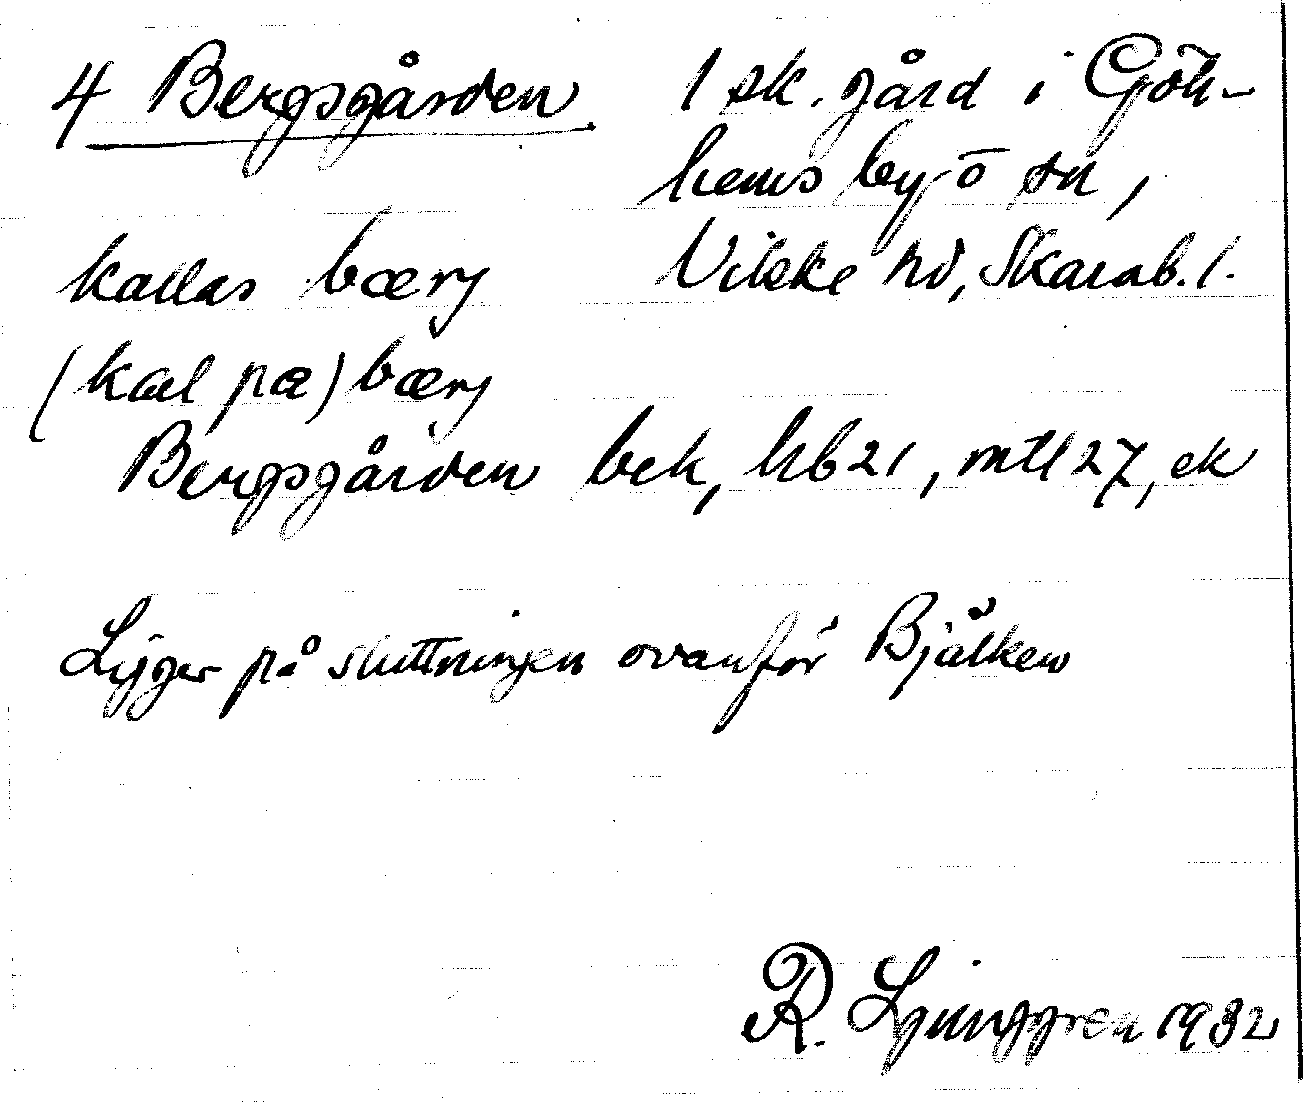 4 Bergsgården 1 sk. gård i Göt-
hems by o sn,
kallas bærj Vilske hd, Skarab. l.
(kæl pæ) bærj
Bergsgården bek, hb 21, mtl 27, ek
Ligger på sluttningen ovanför Bjälken
R. Ljunggren 1932